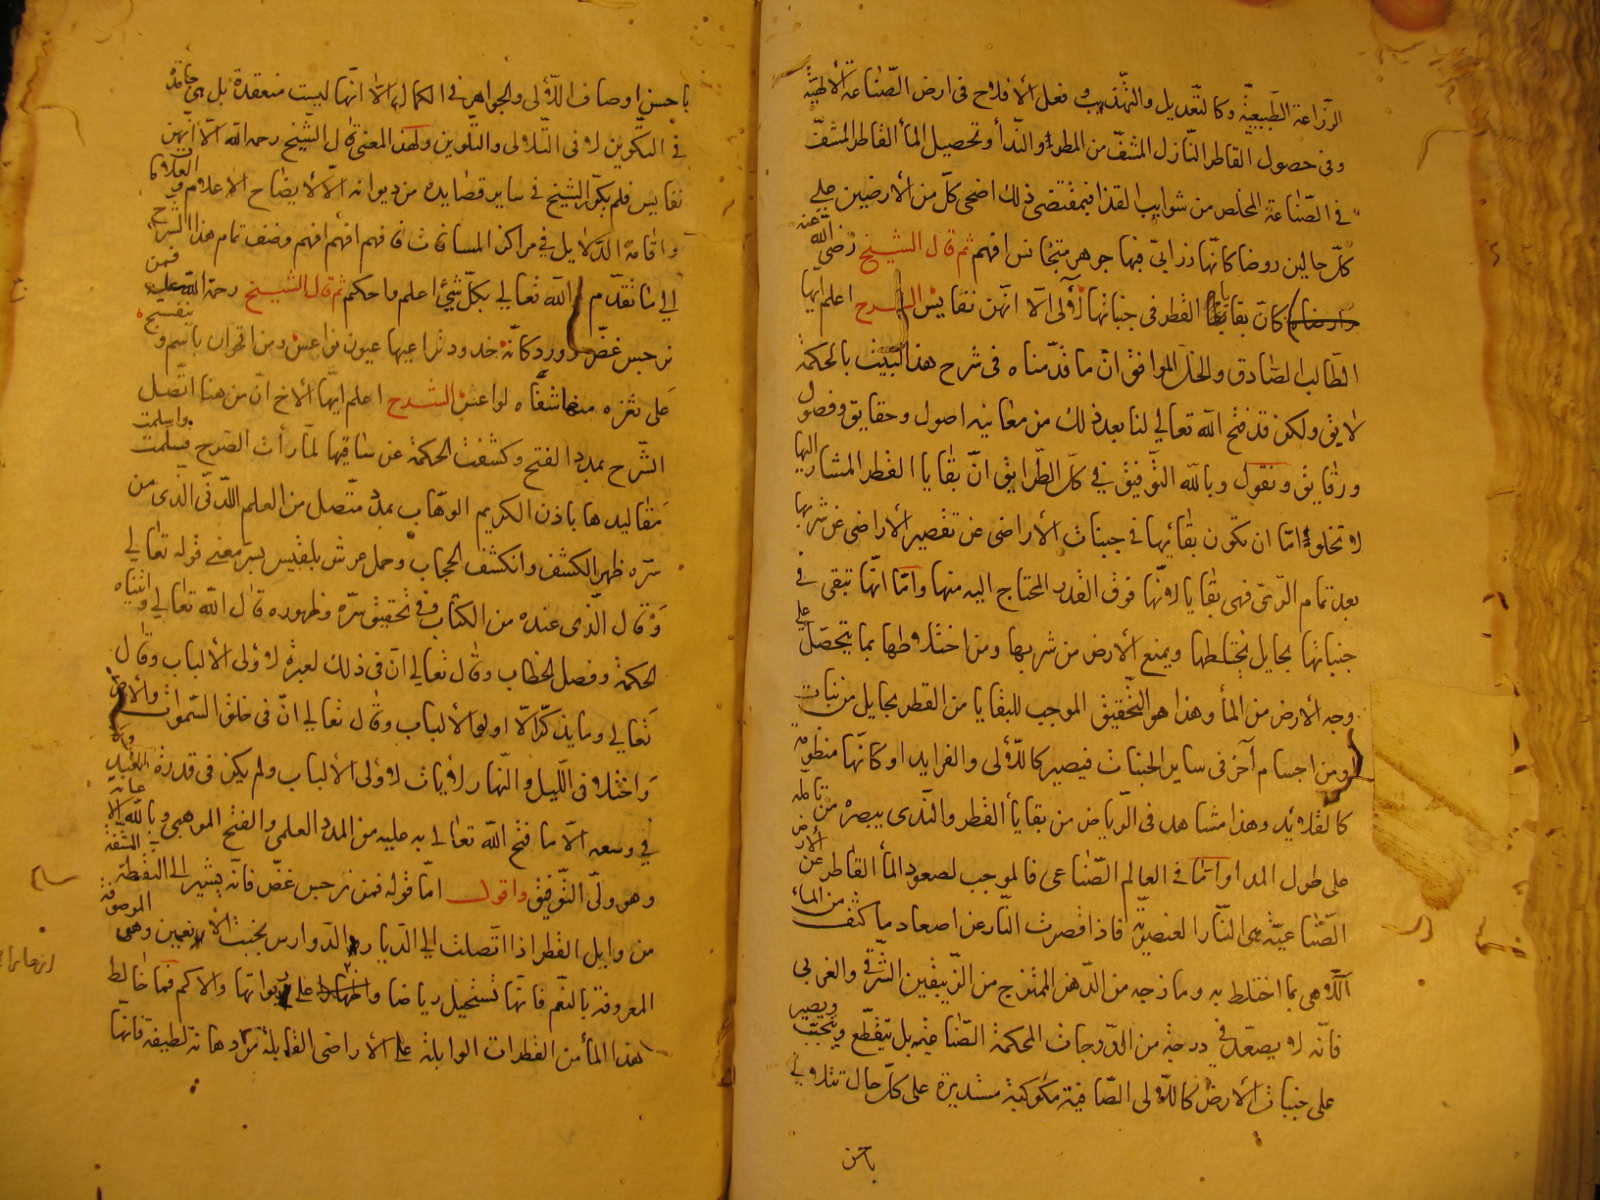 الزراعة الطبيعيّة وكالتعديل والتهذيب وفعل الأفلاح فى ارض الصّناعة الألهيّة
وفى حصول القاطر النّازل المشفّ من المطر والنّدأ وتحصيل المأ القاطر المشفّ
فى الصّناعة المخلص من شوايب القذا فبمقتضى ذلك اضحى كلّ من الأرضين على
كلّ حالين روضا كانّها زرابىّ فيها جوهر متجانس افهم ثم قال الشيخ رضى الله عنه
كانّ بقايا القطر فى جنباتها لآلى الّا انّهن نفايس الشرح اعلم ايّها
الطّالب الصّادق والخلّ الموافق انّ ما قدّمناه فى شرح هذا البيت بالحكمة
لايق ولكن قد فتح الله تعالي لنا بعد ذلك من معانيه اصول وحقايق وفصول
ورقايق ونقول وبالله التّوفيق في كلّ الطّرايق انّ بقايا القطر المشار اليها
لا تخلو امّا ان تكون بقائها فى جنبات الأراضى عن تقصير الأراضى عن شربها
بعد تمام الرّىّ فهى بقايا لانّها فوق القدر المحتاج اليه منها وامّا انّها تبقى فى
جنباتها بحايل يختلطها ويمنع الارض من شربها ومن اختلاطها بما يتحصّل على
وجه الأرض من المأ وهذا هو التّحقيق الموجب للبقايا من القطر بحايل من نبات
ومن اجسام آخر فى ساير الجنبات فيصير كاللّألى والفرايد او كانّها منظومة
كالقلائد وهذا مشاهد فى الرّياض من بقايا القطر والنّدى يبصره من تأمّله
على طول المدا وامّا فى العالم الصّناعى فالموجب لصعود المأ القاطر عن الأرض
الصّناعيّة هى النّار العنصريّة فاذا قصرت النّار عن اصعاد ما كثف من الماء
الآلّهى بما اختلط به ومازجه من الدّهن الممتزج من الزّيبقين الشّرقى والغربى
فانّه لا يصعد فى درجة من الدّرجات المحكمة الصّناعيّة بل يتقطّع ويتحبّب ويصير
على جنبات الأرض كاللّألى الصّافية مكوكبة مستديرة على كلّ حال تتلألى
باحسن
باحسن اوصاف اللّألى والجواهر فى الكمال الّا انّها ليست منعقدة بل هى جامدة
فى التّكوين لا فى التّلالى والتّلوين ولهذا المعنى قال الشّيخ رحمه الله الّا انّهن
نفايس فلم يكرّر الشيخ في ساير قصايده من ديوانه الّا لأيضاح الاعلام
واقامة الدّلايل في مراكز المسافات فافهم افهم افهم وضف تمام هذا الشرح
الي ما تقدّم الله تعالي بكلّ شئ اعلم واحكم ثم قال الشيخ رحمة الله عليه فمن
نرجس غضّ وورد كانّه خدود ثراعيها عيون نواعس ومن اقحوان باسم وبنفسج
على شفاه لواعس الشرح اعلم ايّها الأخ انّ من هنا اتّصل
الشّرح بمدد الفتح وكشفت الحكمة عن ساقيها لمّا رأت الصّرح فسلّمت واسلمت
مقاليدها باذن الكريم الوهّاب بمدد متّصل من العلم اللّدنّى الّذى من
سرّه ظهر الكشف وانكشف الحجاب وحمل عرش بلقيس بسرّ معنى قوله تعالي
وقال الّذى عنده من الكتاب وفى تحقيق سرّه وظهوره قال الله تعالي واتيناه
الحكمة وفصل الخطاب وقال تعالي انّ فى ذلك لعبرة لاولى الألباب وقال
تعالي وما يذكّر الّا اولو الألباب وقال تعالي انّ فى خلق السّموات والأرض
واختلاف اللّيل والنّهار لايات لاولى الألباب ولم يكن فى قدرة العبد
في وسعه الّا ما فتح الله تعالى به عليه من المدد العلمى والفتح الموهبى وبالله
وهو ولّى التّوفيق واقول امّا قوله فمن نرجس غضّ فانّه يشير الى النقطة
من وابل القطر اذا اتّصلت الي الدّيار الدّوارس بحيث الأربعين وهى الموصوفة
المعروفة بالنّعم فانّها تستحيل رياضا على ربواتها والاكم فما خالط
هذا المأ من القطرات الوابلة على الأراضى القابلة من دهانة لطيفة فانّها